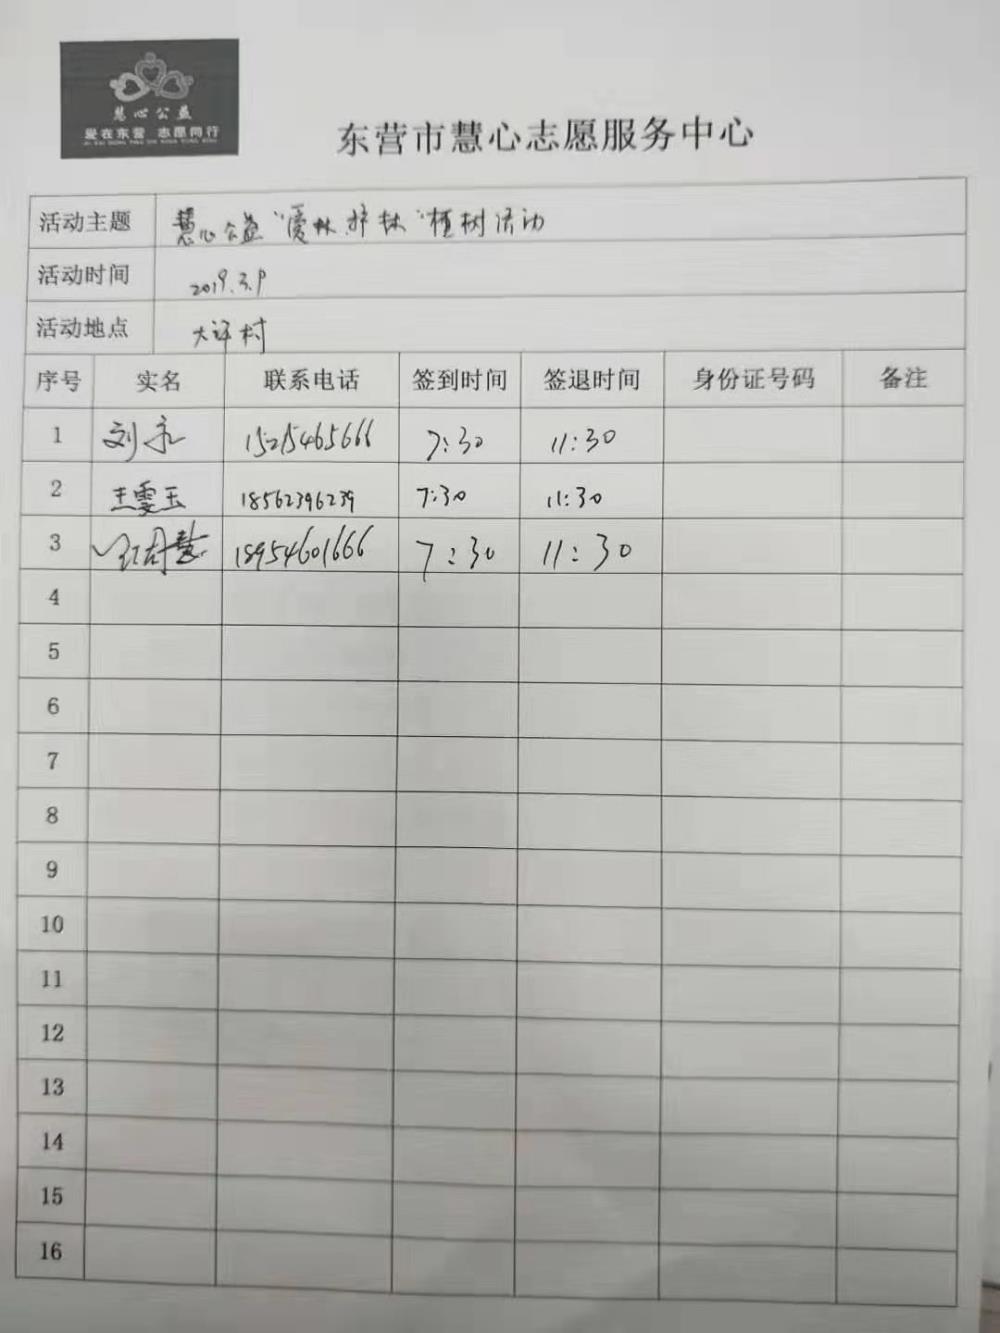 慧心公益
爱在东营 志愿同行
东营市慧心志愿服务中心
活动主题 慧心公益“爱林护林”植树活动
活动时间 2019.3.9
活动地点 大许村
序号 实名 联系电话 签到时间 签退时间 身份证号码 备注
1 刘永 15215465666 7:30 11:30
2 王雯玉 18562396239 7:30 11:30
3 慧 18954601666 7:30 11:30
4
5
6
7
8
9
10
11
12
13
14
15
16